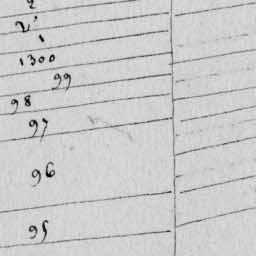 2
2
1
1300
99
98
97
96
95